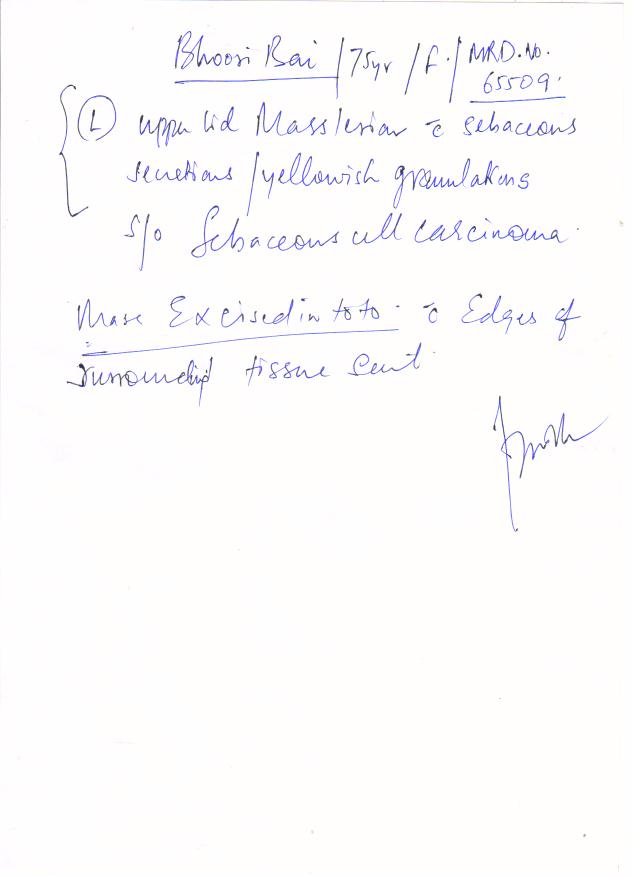 Bhoori Bai / 75yr / F. / MRD. No. 65509.
(L) upper lid Mass/lesion c̄ sebaceous
secretions / yellowish granulations
S/o Sebaceous cell carcinoma.
Mass Excised in toto. c̄ Edges of
surrounding tissue sent.